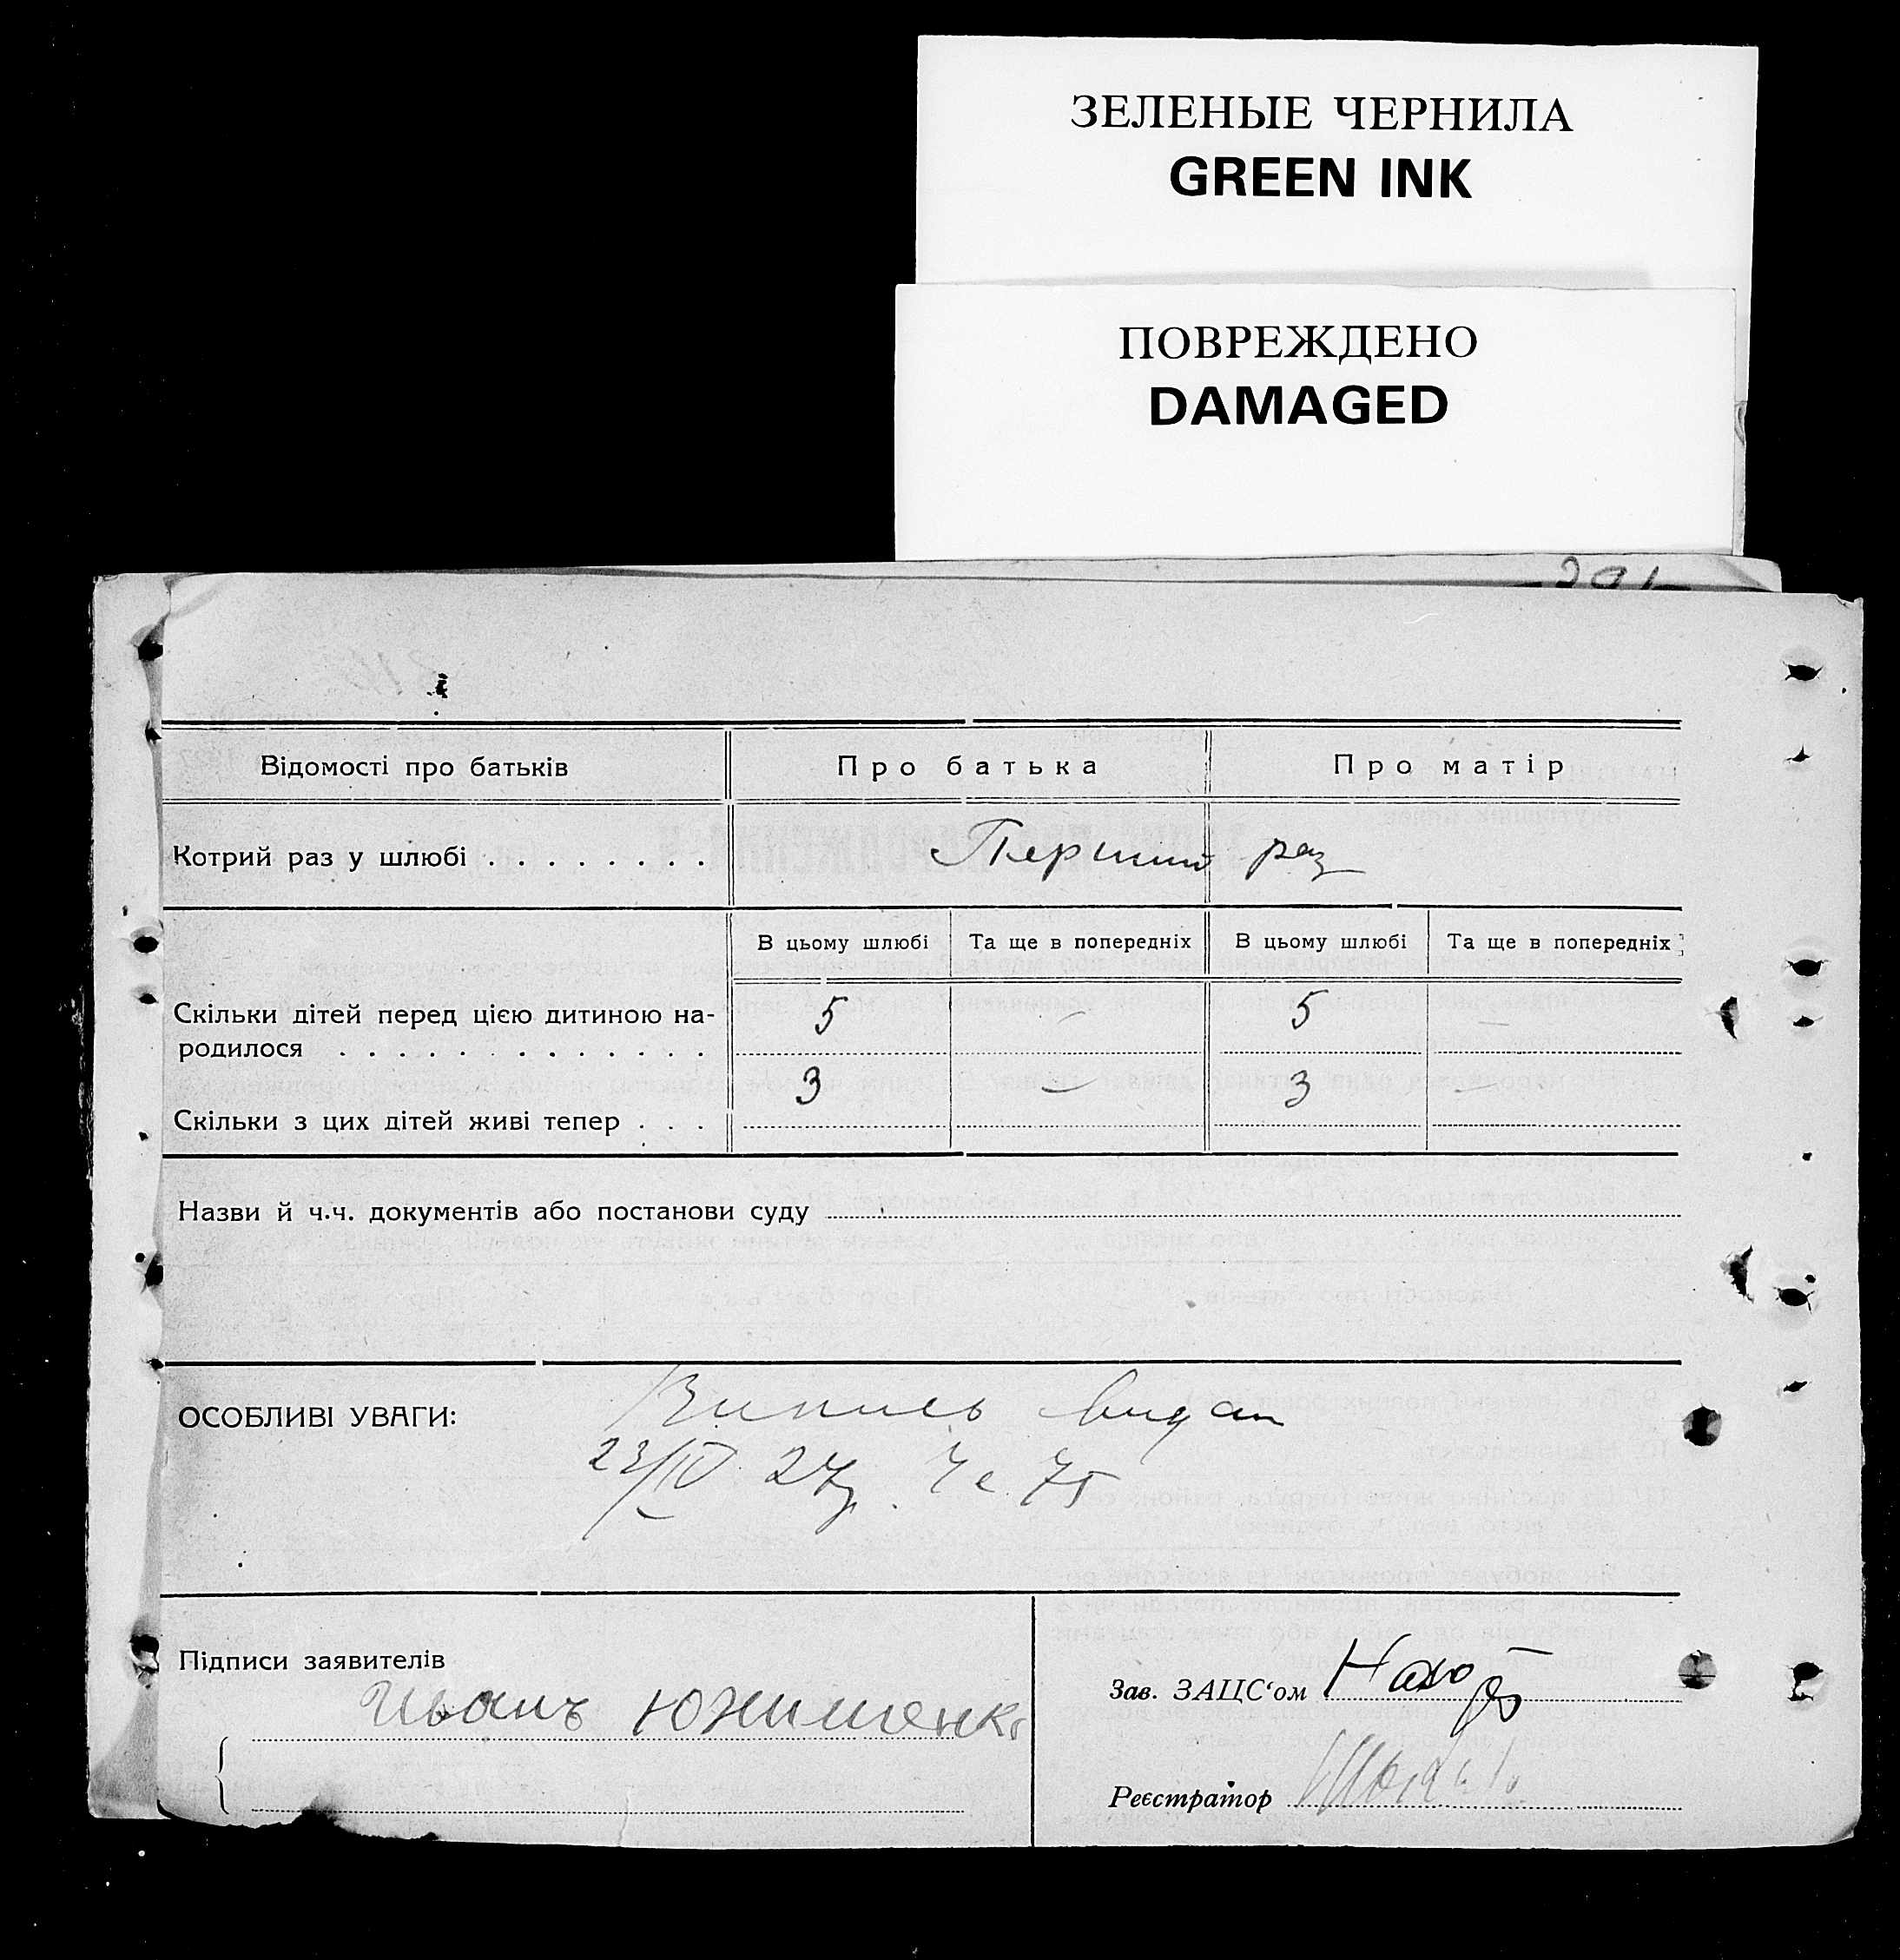 ЗЕЛЕНЫЕ ЧЕРНИЛА
GREEN INK
ПОВРЕЖДЕНО
DAMAGED
Відомості про батьків Про батька Про матір
Котрий раз у шлюбі . . . . . . . . Перший раз
В цьому шлюбі Та ще в попередніх В цьому шлюбі Та ще в попередніх
Скільки дітей перед цією дитиною на- 5 — 5 —
родилося . . . . . . . . . . . . .
3 — 3 —
Скільки з цих дітей живі тепер . . .
Назви й ч.ч. документів або постанови суду
ОСОБЛИВІ УВАГИ: Випись видан
23/IV 27р. Че 75
Підписи заявителів
Зав. ЗАЦС‘ом
Иванъ Юхименко
Реєстратор